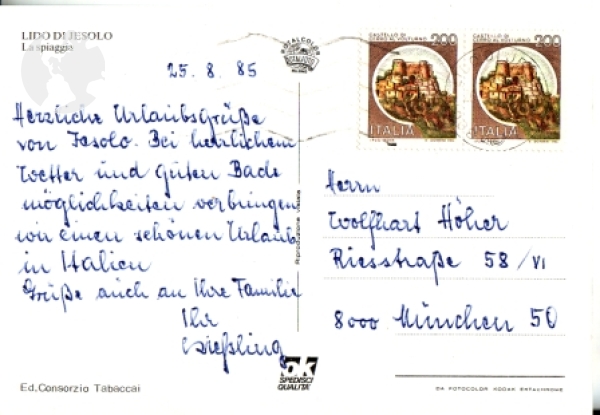 LIDO DI JESOLO
La spiaggia
25. 8. 85
Herzliche Urlaubsgrüße
von Jesolo. Bei herrlichem
Wetter und guten Bade
möglichkeiten verbringen
wir einen schönen Urlaub
in Italien
Grüße auch an Ihre Familie
Ihr
Ed. Consorzio Tabaccai
Riproduzione Vietata
CASTELLO DI
CERRO AL VOLTURNO
200
ITALIA
CASTELLO DI
CERRO AL VOLTURNO
200
ITALIA
Herrn
Wolfhart Höher
Riesstraße 58/VI
8000 München 50
OK
SPEDISCI
QUALITA'
DA FOTOCOLOR KODAK EKTACHROME